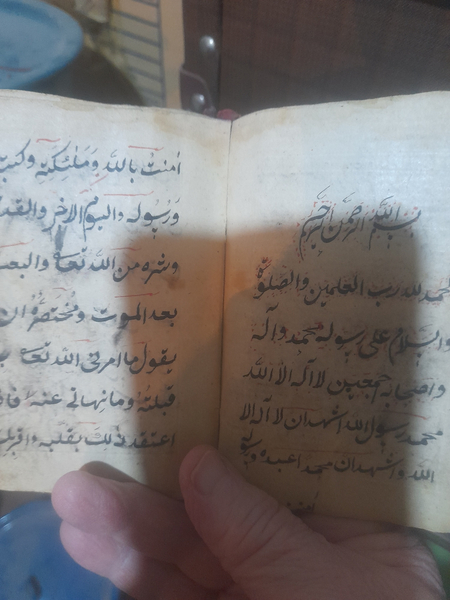 بسم الله الرحمن الرحيم
الحمد لله رب العلمين والصلوة
والسلام على رسوله محمد وآله
واصحابه اجمعين لا اله الا الله
محمد رسول الله اشهد ان لا اله الا
الله واشهد ان محمدا عبده ورسوله
امنت
امنت بالله وملئكته وكتبه
ورسوله واليوم الاخر والقدر
وشره من الله تعالى والبعث
بعد الموت ومختصره ان
يقول ما امرني الله تعالى
قبلته وما نهاني عنه
اعتقد ذلك بقلبه واقر